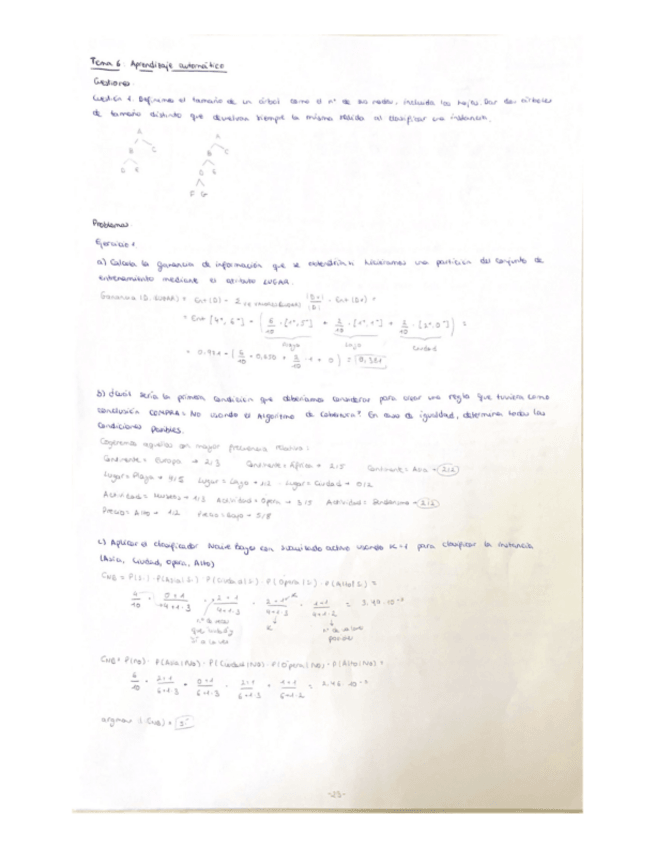 Tema 6: Aprendizaje automático
Cuestiones.
Cuestión 1. Definimos el tamaño de un árbol como el nº de sus nodos, incluida las hojas. Dar dos árboles
de tamaño distinto que devuelvan siempre la misma salida al clasificar una instancia.
A A
B C B C
D E D E
F G
Problemas.
Ejercicio 1.
a) Calcula la ganancia de información que se obtendría si hiciéramos una partición del conjunto de
entrenamiento mediante el atributo LUGAR.
Ganancia (D, LUGAR) = Ent (D) - Σ |Dv| / |D| · Ent (Dv) =
= Ent [4⁺, 6⁻] - ( 5/10 · [1⁺, 5⁻] + 2/10 · [1⁺, 1⁻] + 2/10 · [2⁺, 0⁻] ) =
Playa Lago Ciudad
= 0,971 - ( 6/10 · 0,650 + 2/10 · 1 + 0 ) = 0,381
b) ¿Cuál sería la primera condición que deberíamos considerar para crear una regla que tuviera como
conclusión COMPRA = NO usando el Algoritmo de Cobertura? En caso de igualdad, determina todas las
condiciones posibles.
Cogeremos aquellos con mayor frecuencia relativa:
Continente = Europa → 2/3 Continente = África → 2/5 Continente = Asia → 2/2
Lugar = Playa → Lugar = Lago → 1/2 Lugar = Ciudad → 0/2
Actividad = → 1/3 Actividad = Ópera → 3/5 Actividad = Senderismo → 2/2
Precio = Alto → 1/2 Precio = Bajo → 5/8
c) Aplicar el clasificador Naive Bayes con suavizado aditivo usando K=1 para clasificar la instancia
(Asia, Ciudad, Ópera, Alto)
CNB = P(Sí) · P(Asia|Sí) · P(Ciudad|Sí) · P(Ópera|Sí) · P(Alto|Sí) =
4/10 · 0+1/4+1·3 · 2+1/4+1·3 · 2+1/4+1·3 · 1+1/4+1·2 = 3,49·10⁻³
CNB = P(No) · P(Asia|No) · P(Ciudad|No) · P(Ópera|No) · P(Alto|No) =
6/10 · 2+1/6+1·3 · 0+1/6+1·3 · 3+1/6+1·3 · 1+1/6+1·2 = 2,46·10⁻³
argmax (CNB) = Sí
-23-